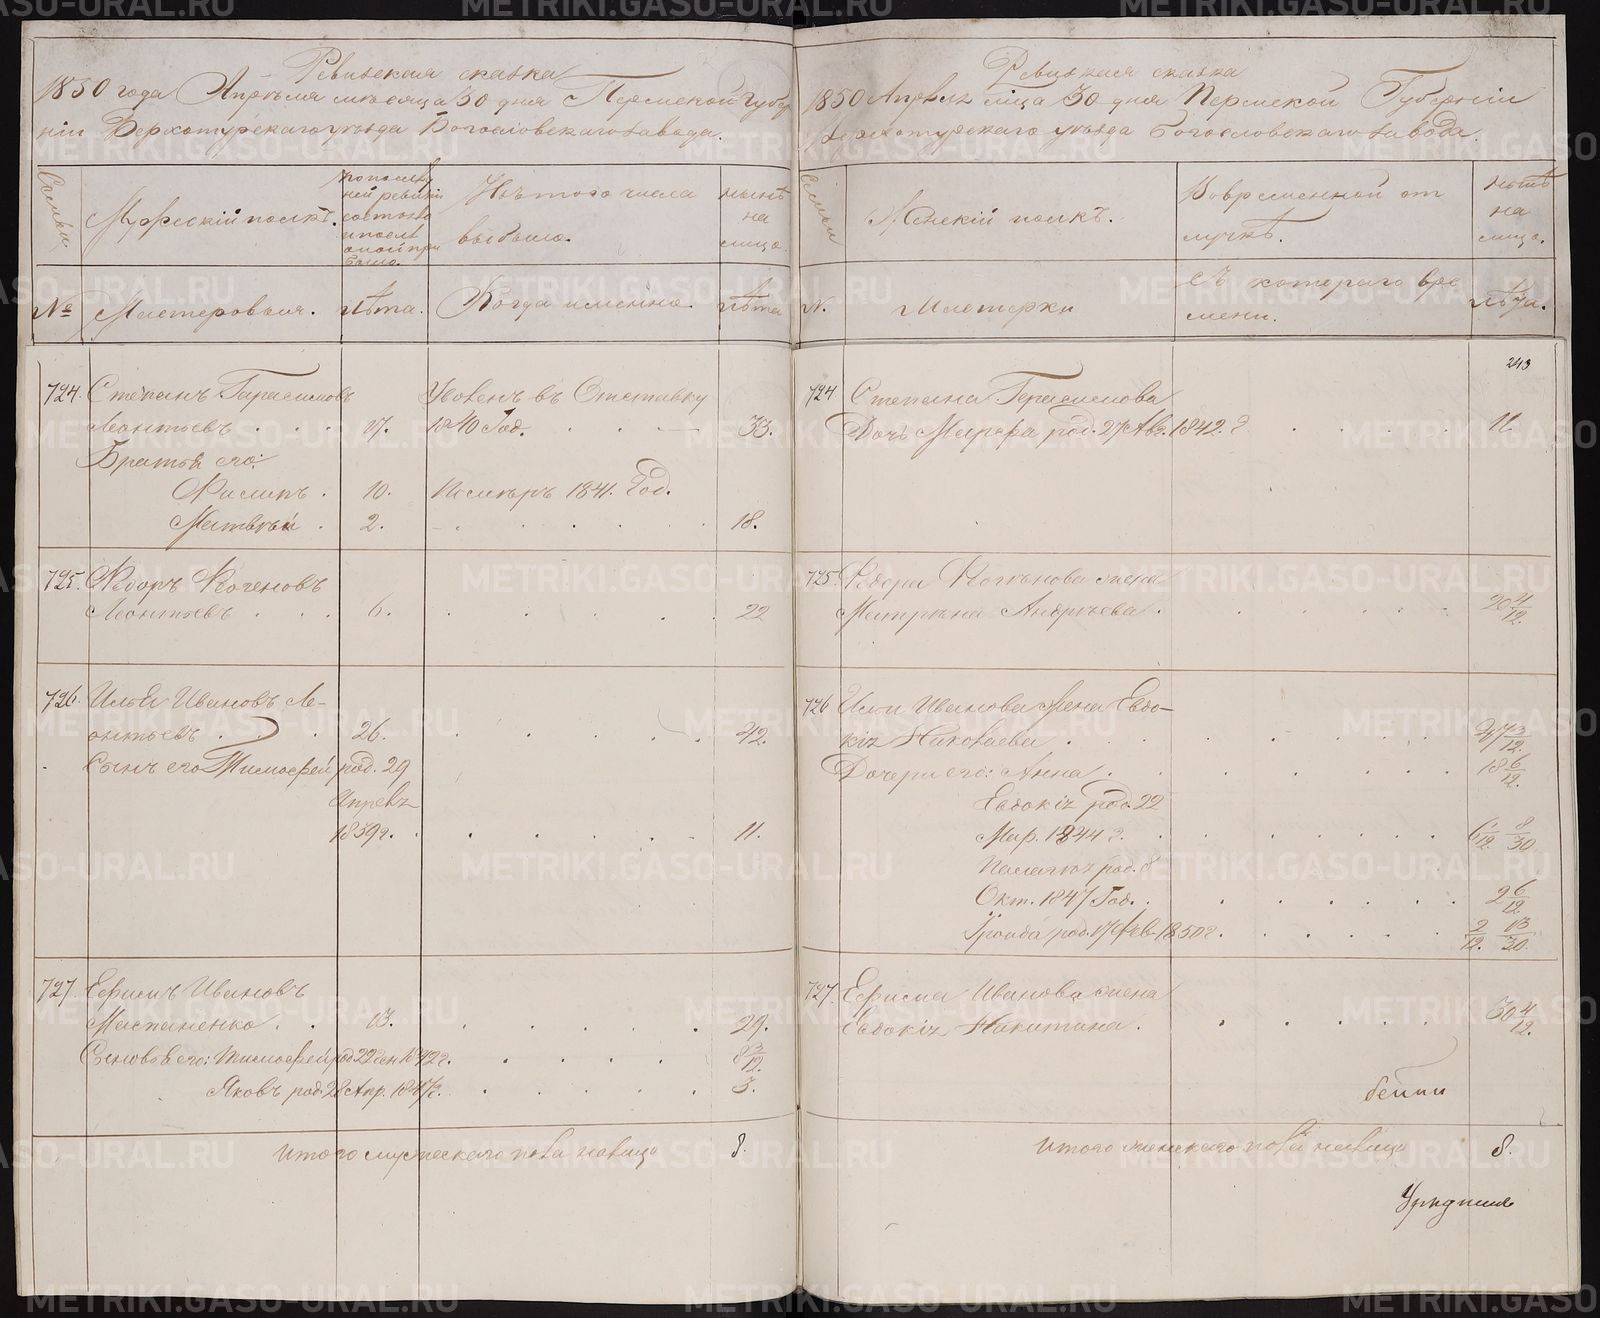 Ревизская сказка
1850 года Апреля месяца 30 дня Пермской Губер
нiи Верхотурскаго уезда Богословскаго завода.
Семьи.
Мужескiй полъ.
По послед
ней ревизiи
состояло
и после
оной при
было.
Изъ того числа
выбыло.
ныне
на
лицо.
№
Мастеровыя.
Лета.
Когда именно.
Лета
724.
Степанъ Гарасимовъ
Уволенъ въ Отставку
Леонтьевъ . . . 17. 1840 Год. 33.
Братья его:
Филипъ . 10. Померъ 1841. Год.
Матвей . 2. 18.
725. Федоръ
Леонтьевъ . . . 6. 22
726. Илья Ивановъ Ле-
онтьевъ . . . 26. 42.
Сынъ его Тимофей род. 29
Апреля
1839г. 11.
727. Ефимъ Ивановъ
13. 29.
Сыновья его: Тимофей род. 22 ген 1842г. 8 3/12.
Яковъ род. 28 Апр. 1847г. 3.
Итого мужескаго пола налицо 8.
Ревизская сказка
1850 Апреля м͠ца 30 дня Пермской Губернiи
Верхотурскаго уезда Богословскаго завода
Семьи
Женскiй полъ.
Во временной от
лучке.
ныне
на
лицо.
N.
Мастерки
Съ котораго вре
мени.
Лета.
243
724 Степана Герасимова
Дочь Марфа род. 27 Авг. 1842 г 11.
725. Федора жена
Матрена Андреева . 20 4/12.
726 Ильи Иванова жена Евдо-
кiя Николаева 37 3/12.
Дочери его: Анна . 18 6/12.
Евдокiя род. 22
Мар. 1844 г. 6 1/12 8/30
Палагия род. 8
Окт. 1847 Год. 2 6/12
Ироида род. 17 Фев. 1850 г. 2/12. 13/30.
727. Ефима Иванова жена
Евдокiя Никитина . 30 4/12.
Итого женскаго пола налицо 8.